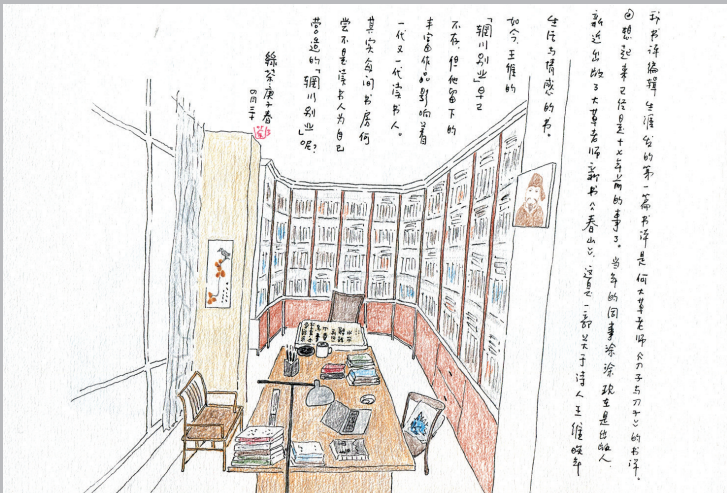 我书评编辑生涯发的第一篇书评是何大草老师《刀子与刀子》的书评。
想起来已经是十七年前的事了。当年的同事涂涂现在是出版人
新近出版了大草老师新书《春山》，这是一部关于诗人王维晚年
生活与情感的书。
如今，王维的
「辋川别业」早已
不在，但他留下的
丰富作品影响着
一代又一代读书人。
其实每间书房何
尝不是读书人为自己
营造的「辋川别业」呢？
绿茶庚子春